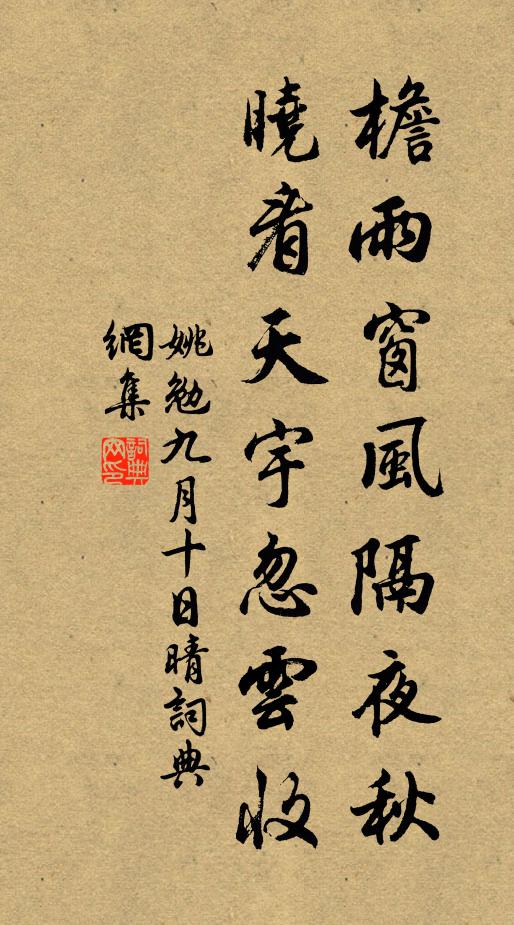 檐雨窗風隔夜秋
曉看天宇忽雲收
姚勉九月十日晴詞典
網集
詞典網印